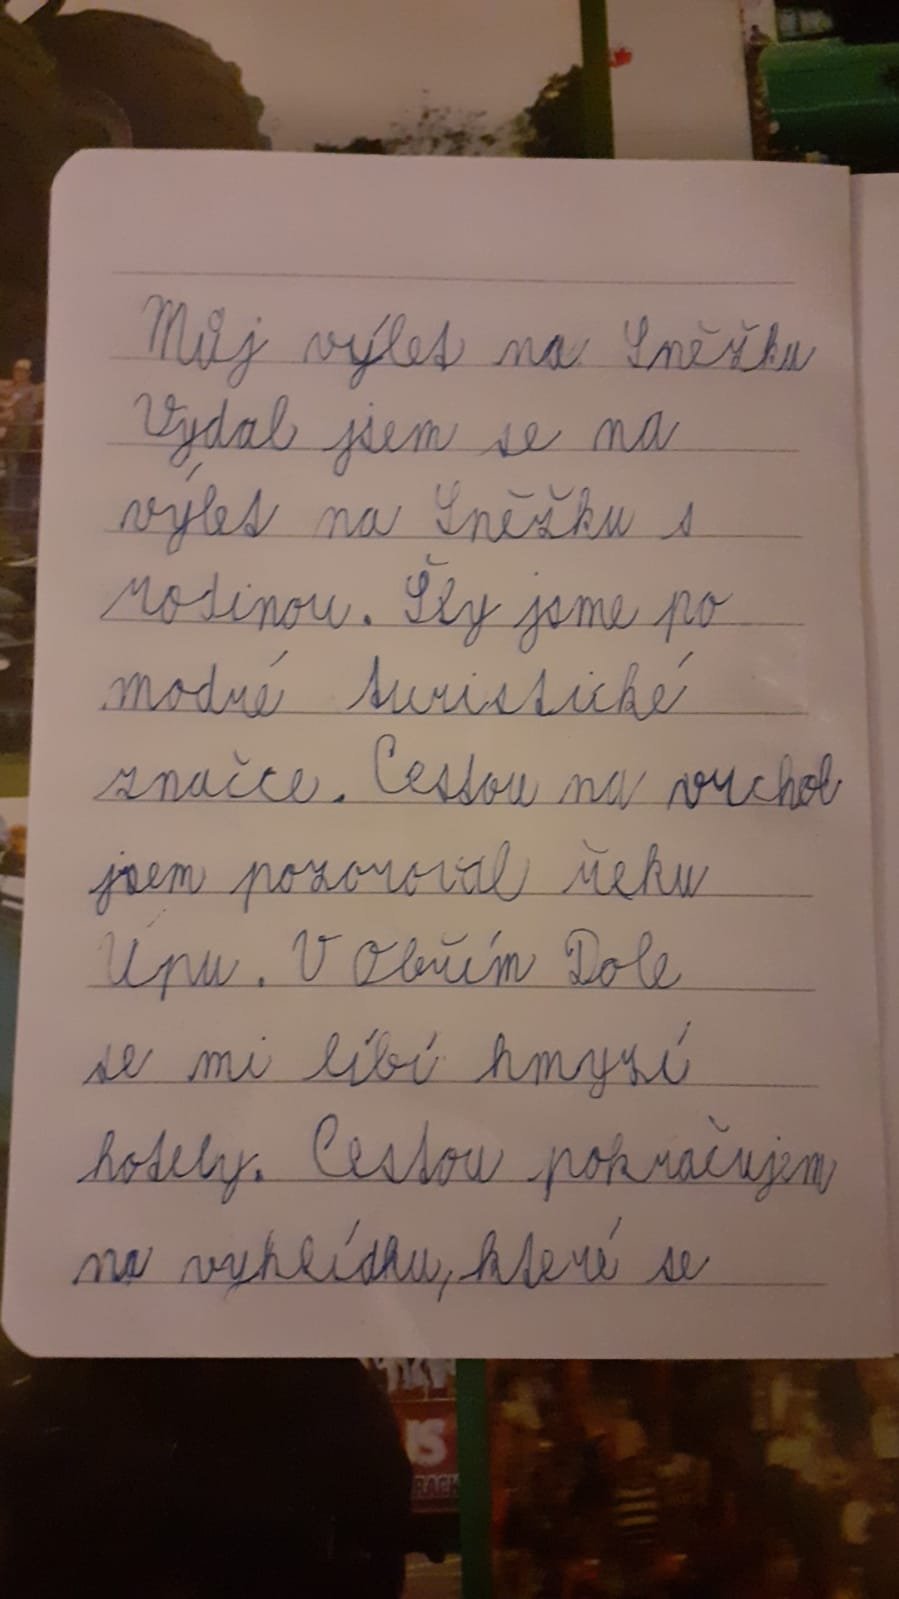 Můj výlet na Sněžku
Vydal jsem se na
výlet na Sněžku s
rodinou. Šly jsme po
modré turistické
značce. Cestou na vrchol
jsem pozoroval řeku
Úpu. V Obřím Dole
se mi líbí hmyzí
hotely. Cestou pokračujem
na vyhlídku, které se